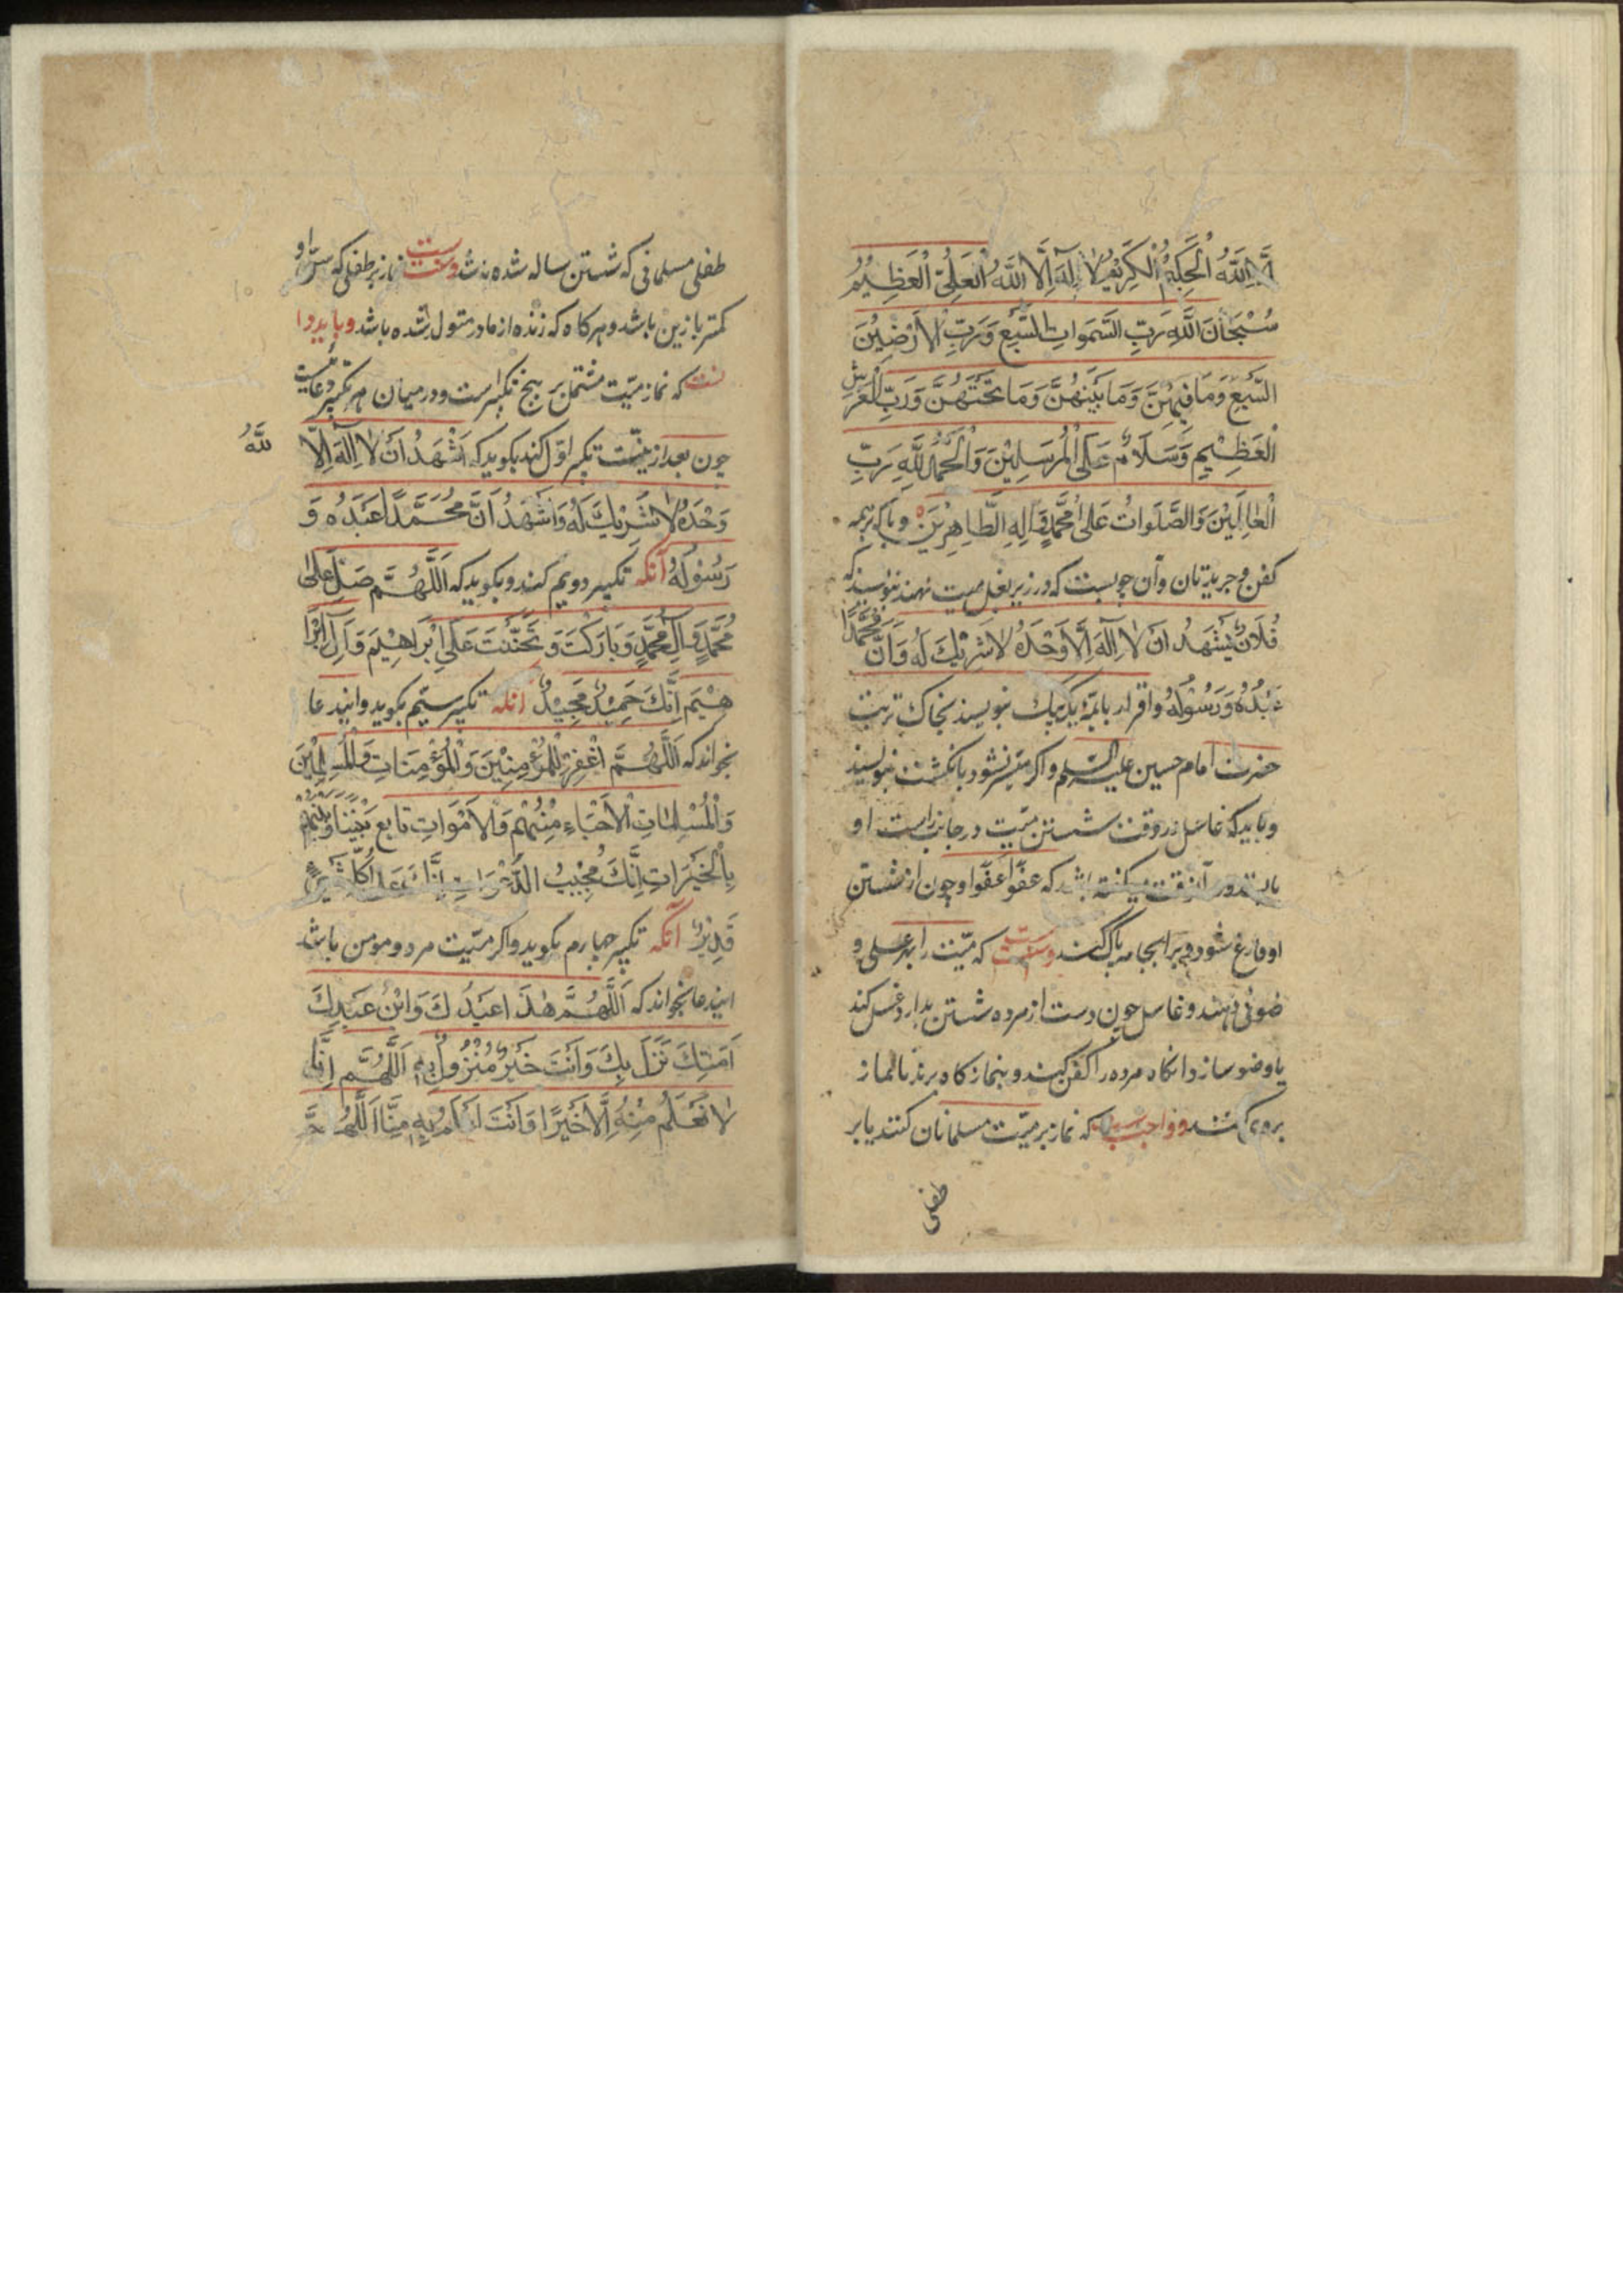 الَّا اللَّهُ الْحَلِيمُ الْكَرِيْمُ لَا اِلٰهَ اِلَّا اللَّهُ الْعَلِيُّ الْعَظِيْمُ
سُبْحَانَ اللَّهِ رَبِّ السَّمٰوَاتِ السَّبْعِ وَرَبِّ الْاَرْضِيْنَ
السَّبْعِ وَمَا فِيْهِنَّ وَمَا بَيْنَهُنَّ وَمَا تَحْتَهُنَّ وَرَبِّ الْعَرْشِ
الْعَظِيْمِ وَسَلَامٌ عَلَى الْمُرْسَلِيْنَ وَالْحَمْدُ لِلَّهِ رَبِّ
الْعَالَمِيْنَ وَالصَّلَوَاتُ عَلٰى مُحَمَّدٍ وَاٰلِهِ الطَّاهِرِيْنَ و باید که بر همه
کفن و جریدتان وآن چوبست که در زیر بغل میت نهند بنویسند که
فُلَانٌ يَشْهَدُ اَنْ لَا اِلٰهَ اِلَّا وَحْدَهُ لَا شَرِيْكَ لَهُ وَاَنَّ مُحَمَّدًا
عَبْدُهُ وَرَسُوْلُهُ واقرار بائمه یک یک بنویسند بخاک تربت
حضرت امام حسین علیه السلم واکر میسر نشود بانکشت بنویسند
و باید که غاسل در وقت شستن میت در جانب راست او
بایستد و در آنوقت میکفته باشد که عفوا عفوا و چون از شستن
او فارغ شود ویرا بجامه پاک کنند وسنت است که میت را بهر غسلی و
ضوئی دهند و غاسل چون دست از مرده شستن بدارد غسل کند
یا وضو سازد انکاه مرده را کفن کنند و بنمازکاه برند تا نماز
بروی کنند و واجب است که نماز بر میت مسلمانان کنند یا بر
طفلی
طفلی مسلمانی که شش ساله شده باشد وسنت است نماز بر طفلی که سن او
کمتر بازین باشد و هرکاه که زنده از مادر متولد شده باشد و باید دا
نست که نماز میت مشتمل بر پنج تکبیر است و در میان هر تکبیر دعائیست
چون بعد از نیت تکبیر اول کند بکوید که اَشْهَدُ اَنْ لَا اِلٰهَ اِلَّا
اللَّهُ
وَحْدَهُ لَا شَرِيْكَ لَهُ وَاَشْهَدُ اَنَّ مُحَمَّدًا عَبْدُهُ وَ
رَسُوْلُهُ آنکه تکبیر دویم کند و بکوید که اَللَّهُمَّ صَلِّ عَلٰى
مُحَمَّدٍ وَاٰلِ مُحَمَّدٍ وَبَارَكْتَ وَتَحَنَّنْتَ عَلٰى اِبْرَاهِيْمَ وَاٰلِ اِبْرَا
هِيْمَ اِنَّكَ حَمِيْدٌ مَجِيْدٌ آنکه تکبیر سیم بکوید و ایندعا
بخواند که اَللَّهُمَّ اغْفِرْ لِلْمُؤْمِنِيْنَ وَالْمُؤْمِنَاتِ وَالْمُسْلِمِيْنَ
وَالْمُسْلِمَاتِ الْاَحْيَاءِ مِنْهُمْ وَالْاَمْوَاتِ تَابِع بَيْنَنَا وَبَيْنَهُمْ
بِالْخَيْرَاتِ اِنَّكَ مُجِيْبُ الدَّعَوَاتِ اِنَّكَ عَلٰى كُلِّ شَيْءٍ
قَدِيْرٌ آنکه تکبیر چهارم بکوید و اکر میت مرد و مومن باشد
ایندعا بخواند که اَللَّهُمَّ هٰذَا عَبْدُكَ وَابْنُ عَبْدِكَ
اَمَتِكَ نَزَلَ بِكَ وَاَنْتَ خَيْرُ مَنْزُوْلٍ بِهِ اَللَّهُمَّ اِنَّا
لَا نَعْلَمُ مِنْهُ اِلَّا خَيْرًا وَاَنْتَ اَعْلَمُ بِهِ مِنَّا اَللَّهُمَّ